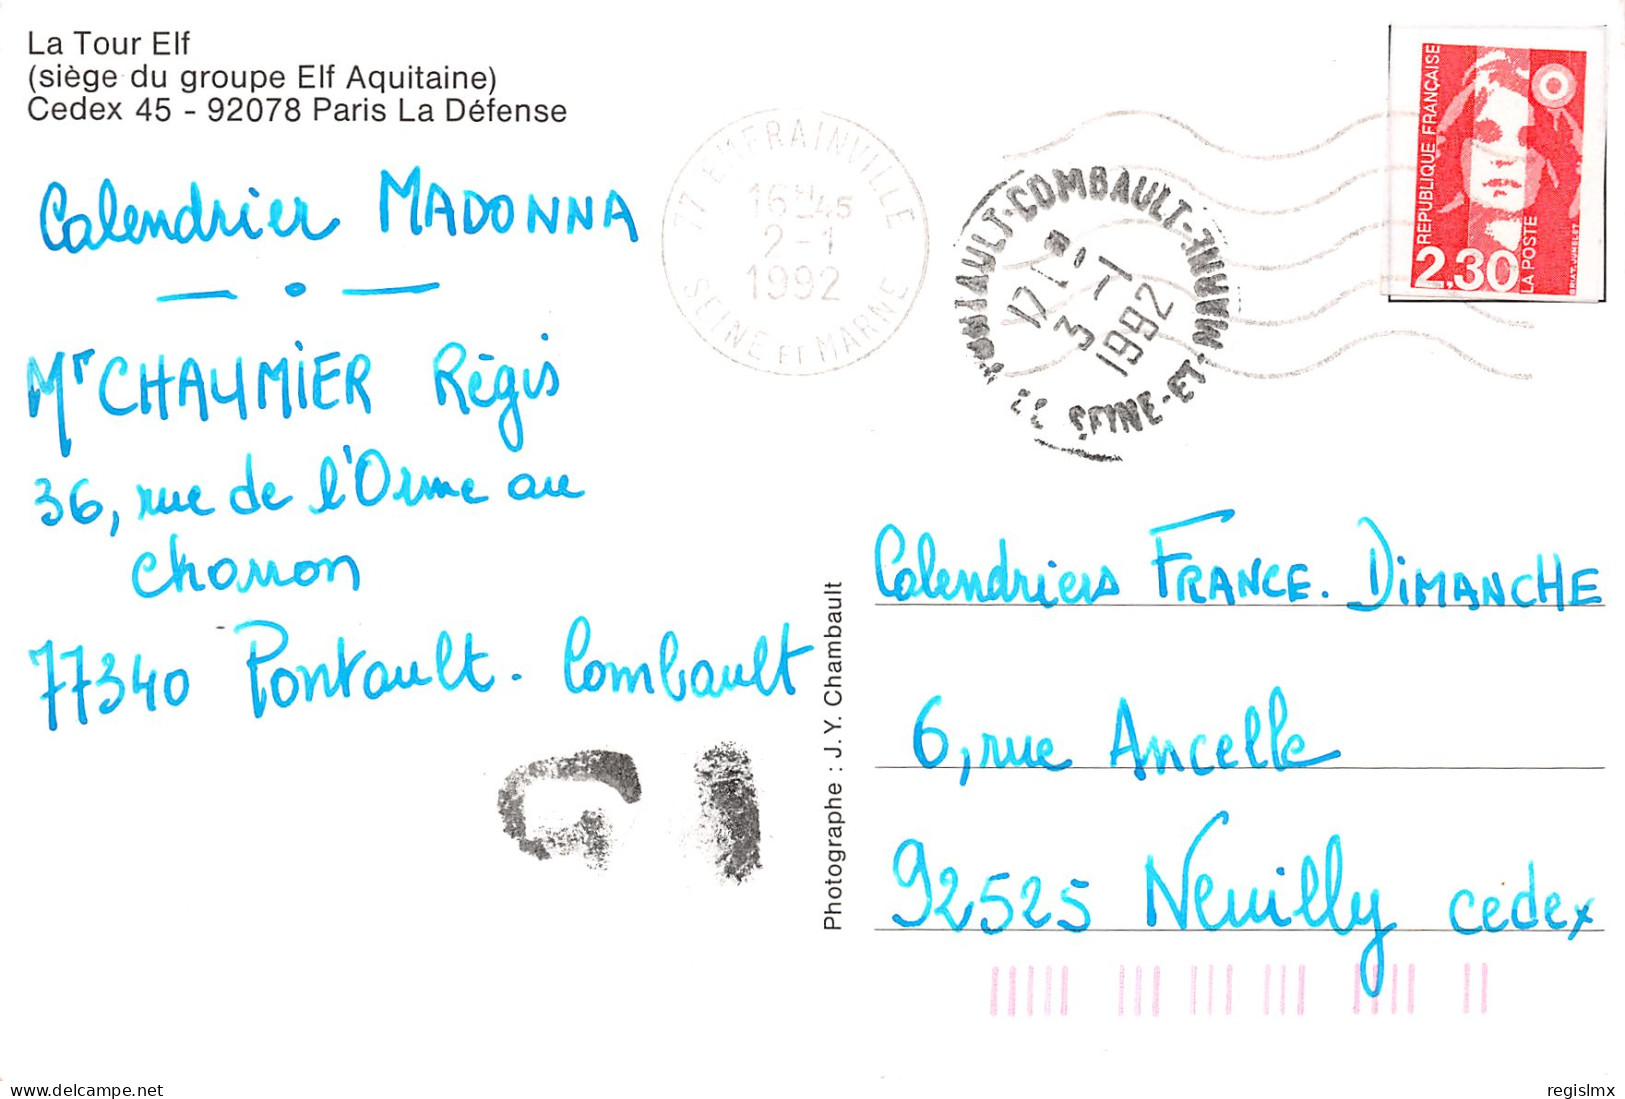 La Tour Elf
(siège du groupe Elf Aquitaine)
Cedex 45 - 92078 Paris La Défense
Calendrier MADONNA
Mr CHAUMIER Régis
36, rue de l'Orme au
Charron
77340 Pontault-Combault
77 EMERAINVILLE
16H45
2-1
1992
SEINE ET MARNE
PONTAULT-COMBAULT
17H
3 - 1
1992
SEINE-ET-MARNE
REPUBLIQUE FRANÇAISE
2,30
LA POSTE
BRIAT. JUMELET
Photographe : J. Y. Chambault
Calendriers FRANCE. DIMANCHE
6, rue Ancelle
92525 Neuilly cedex
www.delcampe.net
regislmx